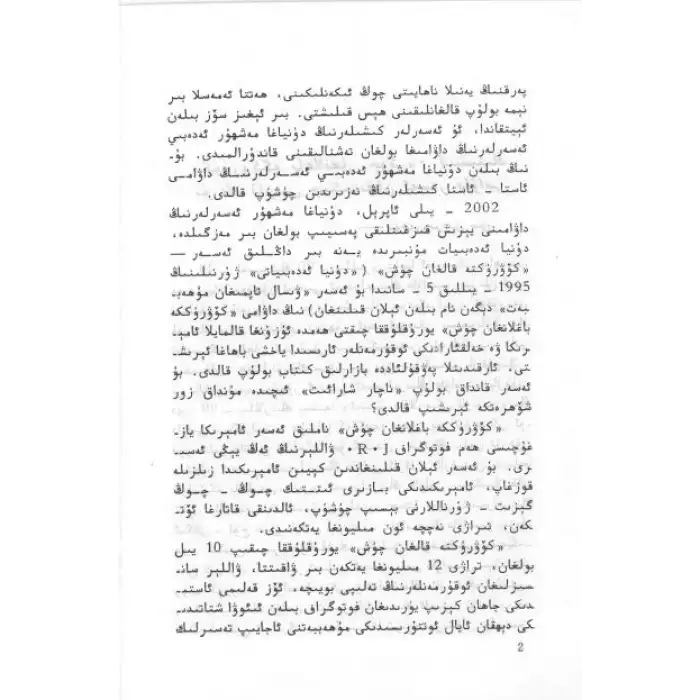 پەرقنىڭ يەنىلا ناھايىتى چوڭ ئىكەنلىكىنى، ھەتتا ئەمەسلا بىر
نېمە بولۇپ قالغانلىقىنى ھېس قىلىشتى. بىر ئېغىز سۆز بىلەن
ئېيتقاندا، ئۇ ئەسەرلەر كىشىلەرنىڭ دۇنياغا مەشھۇر ئەدەبىي
ئەسەرلەرنىڭ داۋامىغا بولغان تەشنالىقىنى قاندۇرالمىدى. بۇ-
نىڭ بىلەن دۇنياغا مەشھۇر ئەدەبىي ئەسەرلەرنىڭ داۋامى
ئاستا - ئاستا كىشىلەرنىڭ نەزىرىدىن چۈشۈپ قالدى.
2002 - يىلى ئاپرېل، دۇنياغا مەشھۇر ئەسەرلەرنىڭ
داۋامىنى يېزىش قىزغىنلىقى پەسىيىپ بولغان بىر مەزگىلدە،
دۇنيا ئەدەبىيات مۇنبىرىدە يەنە بىر داڭلىق ئەسەر —
«كۆۋرۈكتە قالغان چۈش» («دۇنيا ئەدەبىياتى» ژۇرنىلىنىڭ
1995 - يىللىق 5 - سانىدا بۇ ئەسەر «ۋىسال تاپمىغان مۇھەب-
بەت» دېگەن نام بىلەن ئېلان قىلىنغان) نىڭ داۋامى «كۆۋرۈككە
باغلانغان چۈش» يورۇقلۇققا چىقتى ھەمدە ئۇزۇنغا قالمايلا ئامې-
رىكا ۋە خەلقئارادىكى ئوقۇرمەنلەر ئارىسىدا ياخشى باھاغا ئېرىش-
تى، ئارقىدىنلا پەۋقۇلئاددە بازارلىق كىتاب بولۇپ قالدى. بۇ
ئەسەر قانداق بولۇپ «ناچار شارائىت» ئىچىدە مۇنداق زور
شۆھرەتكە ئېرىشىپ قالدى؟
«كۆۋرۈككە باغلانغان چۈش» ناملىق ئەسەر ئامېرىكا ياز-
غۇچىسى ھەم فوتوگراف R · J · ۋاللېرنىڭ ئەڭ يېڭى ئەسى-
رى. بۇ ئەسەر ئېلان قىلىنغاندىن كېيىن ئامېرىكىدا زىلزىلە
قوزغاپ، ئامېرىكىدىكى بازىرى ئىتتىك چوڭ - چوڭ
گېزىت - ژۇرناللارنى بېسىپ چۈشۈپ، ئالدىنقى قاتارغا ئۆت-
كەن، تىراژى نەچچە ئون مىليونغا يەتكەنىدى.
«كۆۋرۈكتە قالغان چۈش» يورۇقلۇققا چىقىپ 10 يىل
بولغان، تىراژى 12 مىليونغا يەتكەن بىر ۋاقىتتا، ۋاللېر سان-
سىزلىغان ئوقۇرمەنلەرنىڭ تەلىپى بويىچە، ئۆز قەلىمى ئاستى-
دىكى جاھان كېزىپ يۈرىدىغان فوتوگراف بىلەن ئىئوۋا شتاتىدى-
كى دېھقان ئايال ئوتتۇرىسىدىكى مۇھەببەتنى ئاجايىپ تەسىرلىك
2